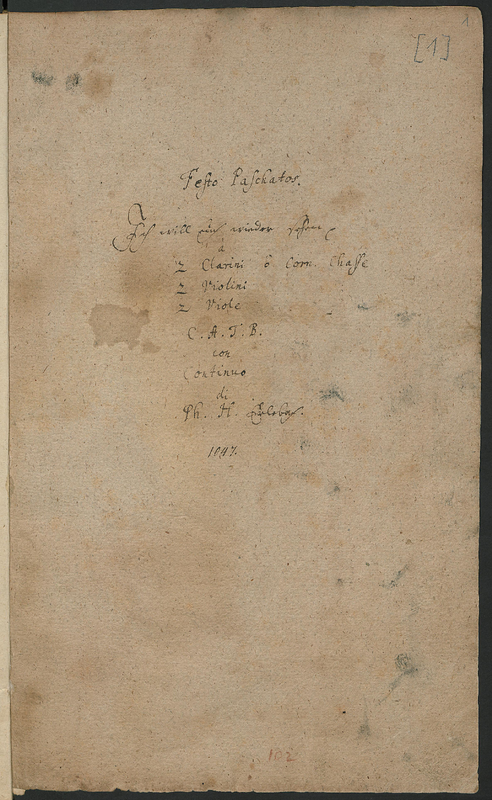 1
[1]
Festo Paschatos.
Ich will euch wieder sehen
à
2 Clarini ô Corn. Chasse
2 Violini
2 Viole
C. A. T. B.
con
Continuo
di
Ph. H. Erlebach.
102